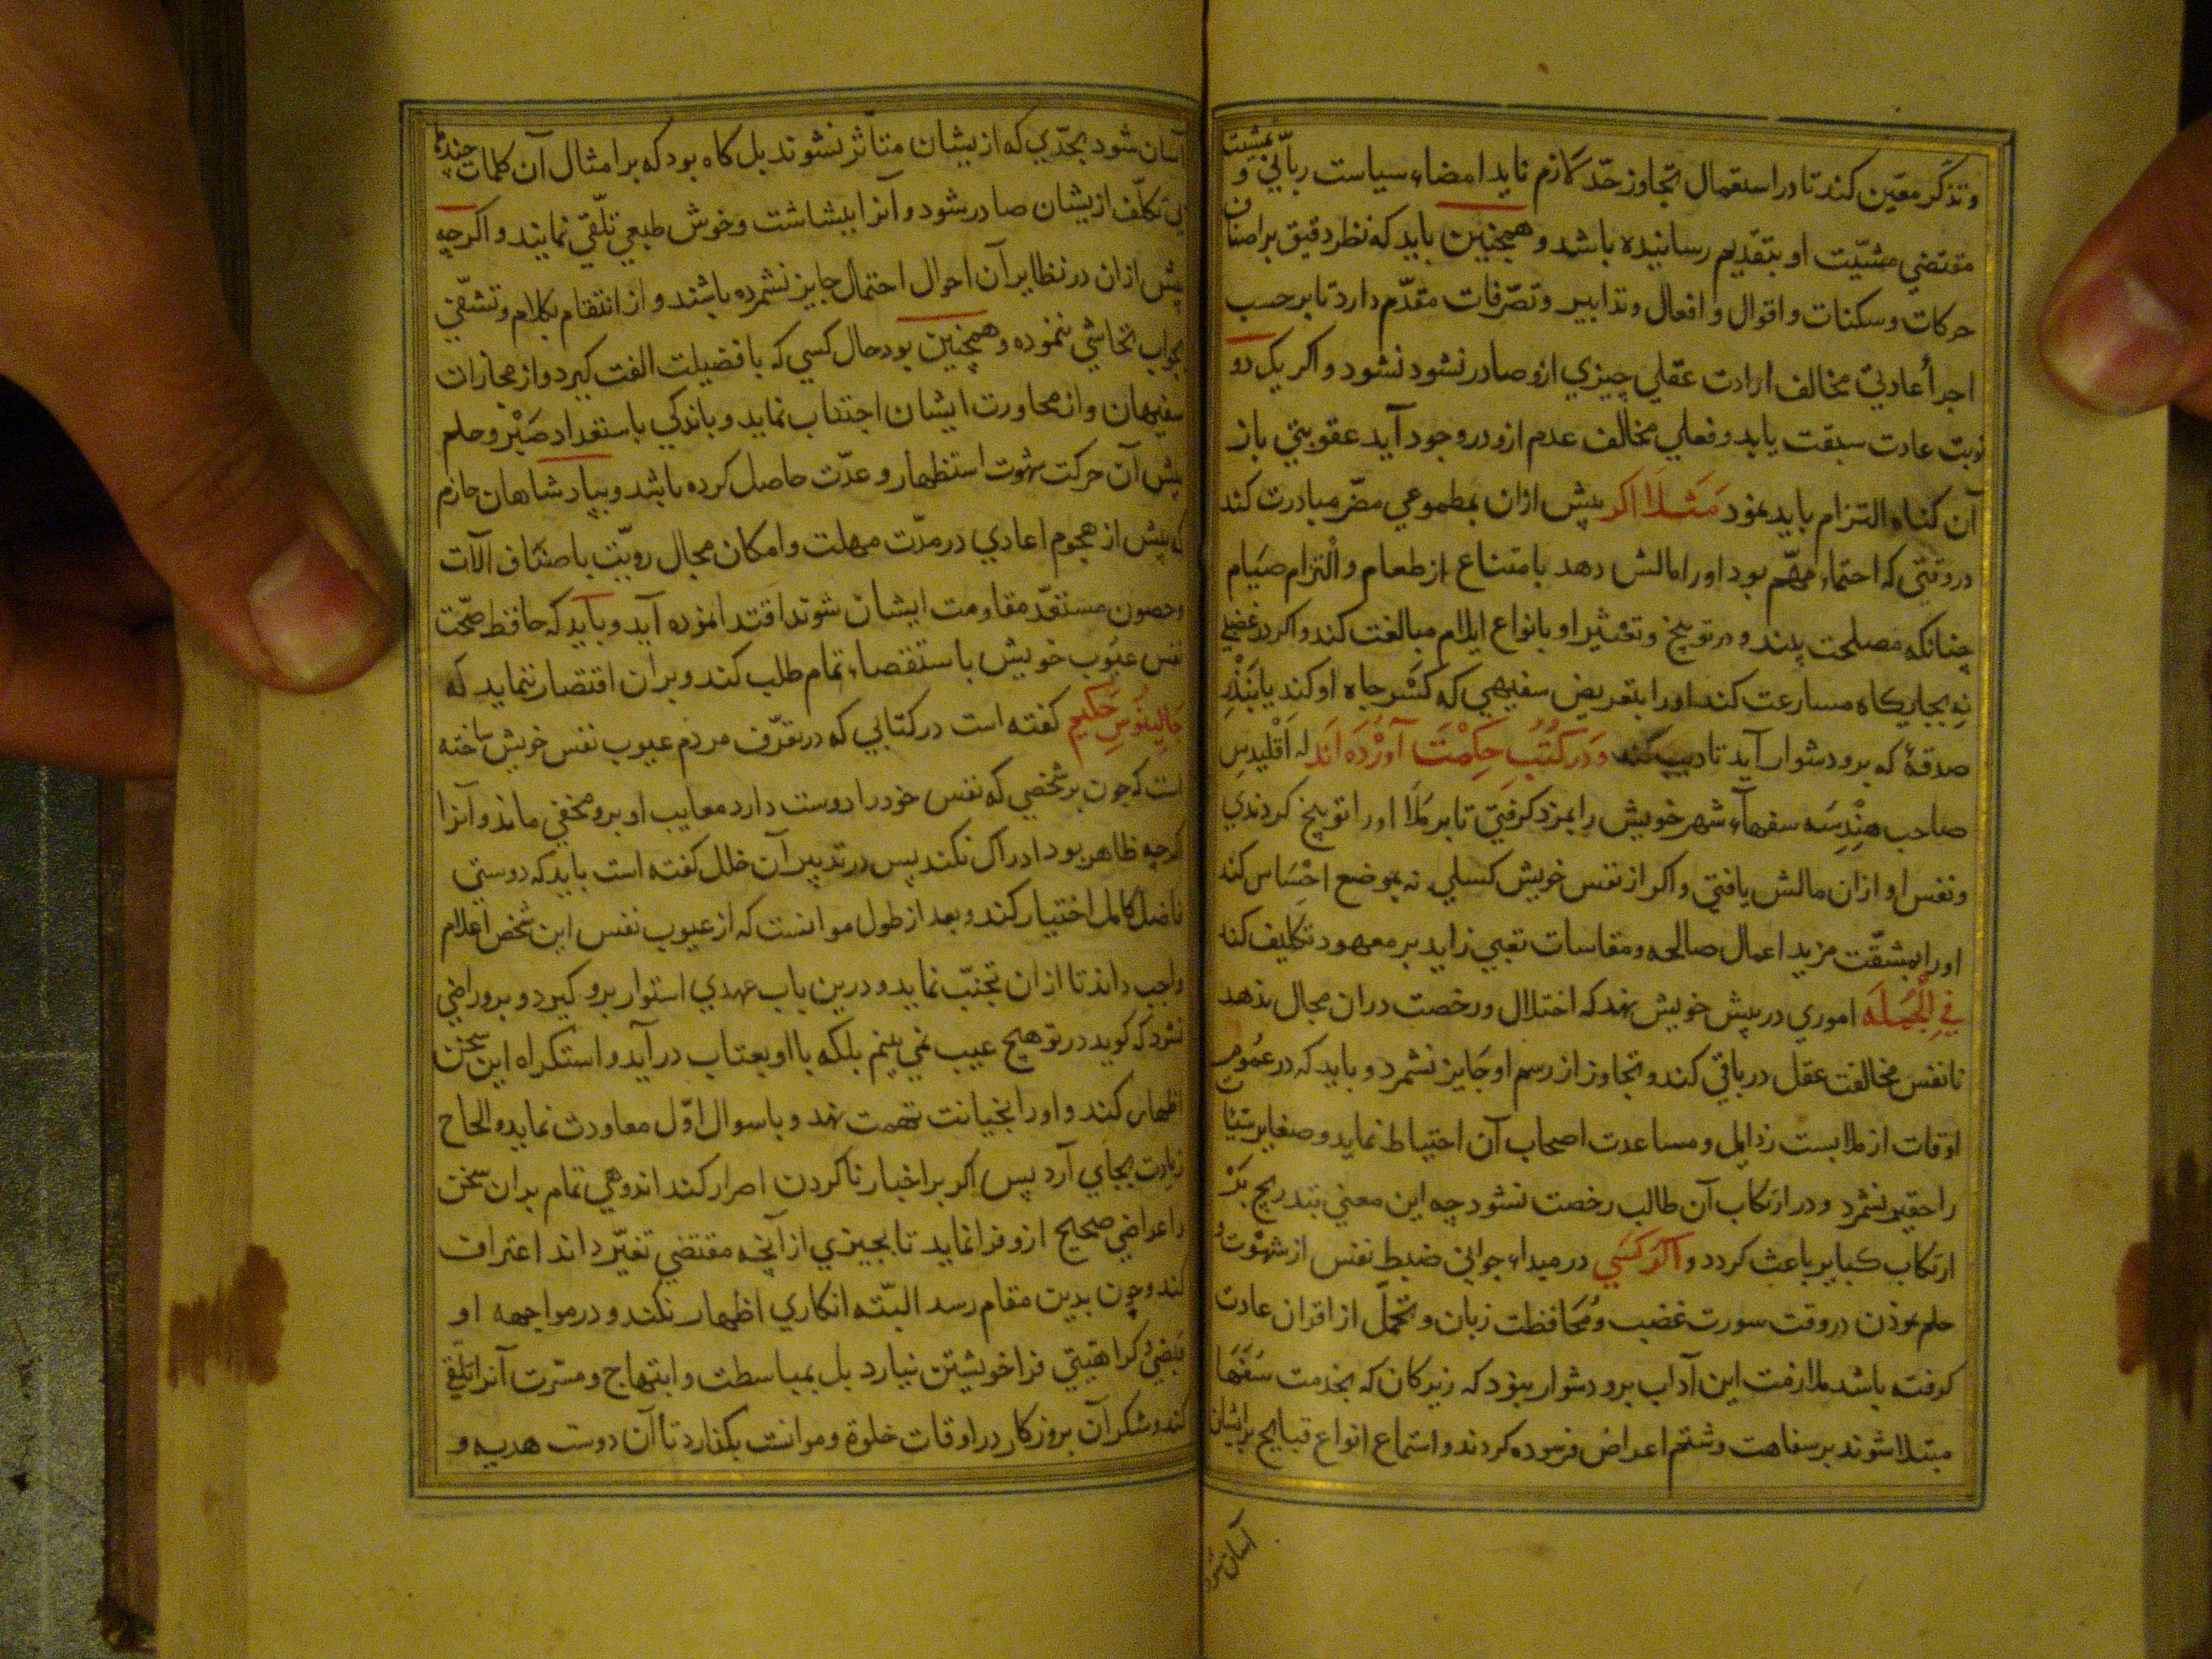 وتذکر معیّن کند تا در استعمال تجاوز حدّ لازم ناید امضاء سیاست ربّانی و بمشیت
مقتضی مشیّت او بتقدیم رسانیده باشد و همچنین باید که نظر دقیق بر اصناف
حرکات و سکنات و اقوال و افعال و تدابیر و تصرّفات مقدّم دارد تا بر حسب
اجرأ عادتی مخالف ارادت عقلی چیزی ازو صادر نشود نشود و اکر یک دو
نوبت عادت سبقت یابد و فعلی مخالف عدم ازو در وجود آید عقوبتی باز
آن کناه التزام باید نمود مَثَلًا اکر پیش ازان بمطموعی مضرّ مبادرت کند
در وقتی که احتماء مهّم بود اورا مالش دهد بامتناع از طعام و الْتزام صیَام
چنانکه مصلحت بیند و در توبیخ و تعثیر او بانواع ایلام مبالغت کند و اکر در غضبی
نه بجایکاه مسارعت کند اورا بتعریض سفیهی که کَسْر جاه او کند یا بنَذْرِ
صدقهٔ که برو دشوار آید تادیب کند وَ دَر کُتُبِ حِکْمَتَ آوَرْدَه اَند له اَقْلیدِسِ
صاحب هِنْدِسَه سفهآء شهر خویش را بمزد کرفتی تا بر مَلَأ اورا توبیخ کردندی
و نفس او ازان مالش یافتی و اکر از نفس خویش کسلی نه بموضع احْسَاس کند
اورا بمشقّت مزید اعمال صالحه و مقاسات تعبی زاید بر معهود تکلیف کند
فِی الْجُمْلَه اموری در پیش خویش نهد که اختلال و رخصت دران مجال ندهد
تا نفس مخالفت عقل در باقی کند و تجاوز از رسم او جَایز نشمرد و باید که در عمُوم
اوقات از ملابست رذایل و مساعدت اصحاب آن احتیاط نماید و صغایر سیّئات
را حقیر نشمرد و در ارتکاب آن طالب رخصت نشود چه این معنی بتدریج بَرْ
ارتکاب کبایر باعث کردد و اَکَر کَسَی در مبداء جوانی ضبط نفس از شهْوت و
حلم نموذن در وقت سورت غضب و مُحَافظت زبان و تحمّل از اقران عادت
کرفته باشد ملازمت این آداب برو دشوار نبود که زیرکان که بخدمت سُفَهَا
مبتلا شوند بر سفاهت و شتم اعراض فرسوده کردند و استماع انواع قبایح بر ایشان
آسان شود
آسان شود بحدّی که از یشان متأثر نشوند بل کاه بود که بر امثال آن کلمات خنده
بی تکلّف از یشان صادر شود و آنرا ببشاشت و خوش طبعی تلّقی نمایند و اکر چه
پیش ازان در نظایر آن احوال احتمال جایز نشمرده باشند و از انتقام بکلام و تشفّی
بجواب تحاشی ننموده و همچنین بود حال کسی که با فضیلت الفت کیرد و از مجازات
سفیهان و از محاورت ایشان اجتناب نماید و باندکی باستعداد صَبْر و حلم
پیش آن حرکت شهوت استظهار و عدّت حاصل کرده باشد و بپادشاهان حازم
که پیش از هجوم اعادی در مدّت مهلت و امکان مجال رویّت باصناف الآت
و حصون مستعدّ مقاومت ایشان شوند اقتدا نموده آید و باید که حافظ صحّت
نفس عیُوب خویش باستقصاء تمام طلب کند و بران اقتصار ننماید که
جَالِینُوسِ حَکیم کفته است در کتابی که در تعرّف مردم عیوب نفس خویش ساخته
است که چون بر شخصی که نفس خود را دوست دارد معایب او برو مخفی ماند و آنرا
اکر چه ظاهر بود ادراک نکند پس در تدبیر آن خلل کفته است باید که دوستی
فاضل کامل اختیار کند و بعد از طول موانست که از عیوب نفس این شخص اعلام
واجب داند تا ازان تجنّب نماید و درین باب عهدی استوار برو کیرد و برو راضی
نشود که کوید در تو هیچ عیب نمی بینم بلکه با او بعتاب در آید و استکراه این سخن
اظهار کند و اورا بخیانت تهمت نهد و با سوال اوّل معاودت نماید و الحاح
زیادت بجای آرد پس اکر بر اخبار ناکردن اصرار کند اندوهی تمام بدان سخن
و اعراضی صحیح ازو فرا نماید تا بچیزی از آنچه مقتضی تغیّر داند اعتراف
کند و چون بدین مقام رسد البتّه انکاری اظهار نکند و در مواجهه او
قبضی و کراهیتی فرا خویشتن نیارد بل بمباسطت و ابتهاج و مسّرت آنرا تلقّی
کند و شکر آن بروزکار در اوقات خلوة و موانست بکذارد تا آن دوست هدیه و